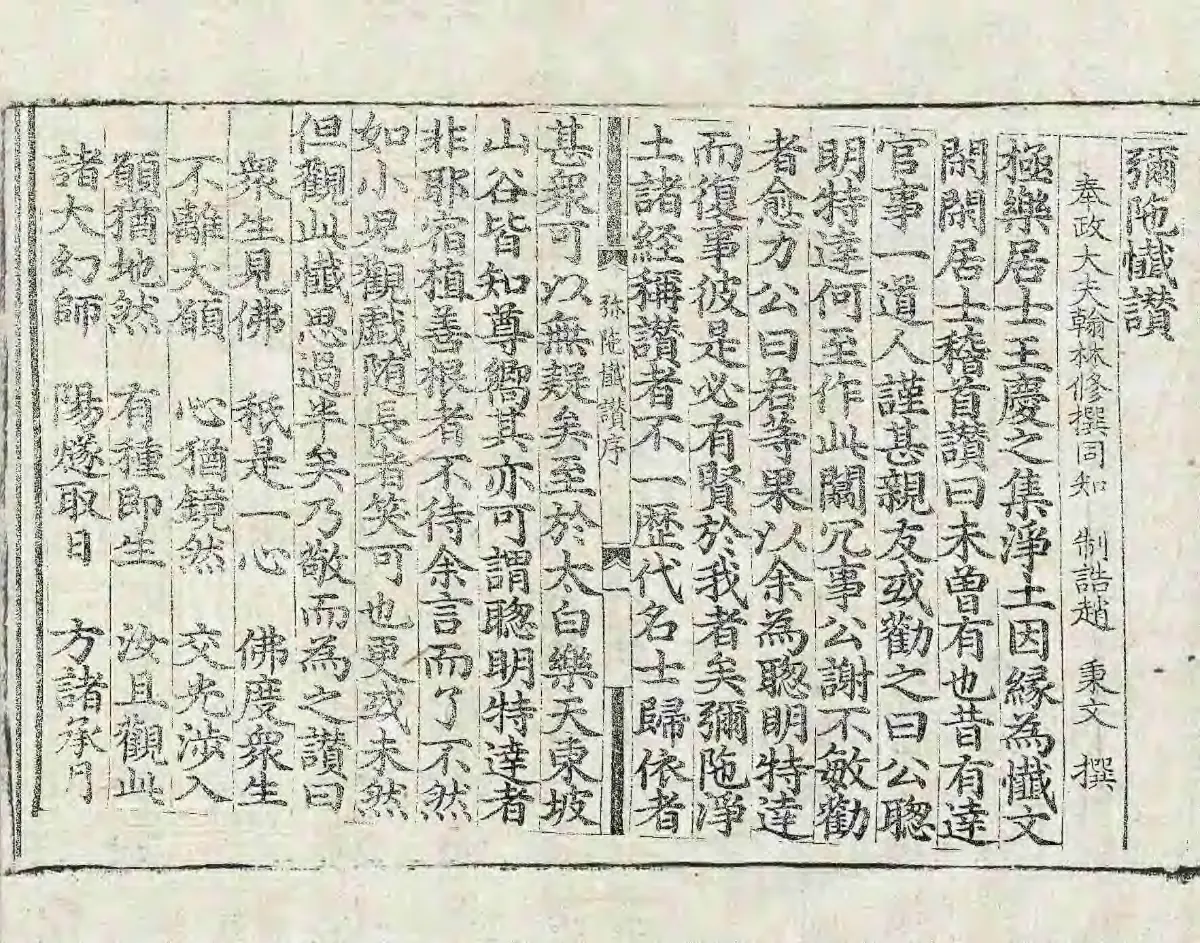 彌陁懺讃
奉政大夫翰林修撰同知 制誥趙 秉文 撰
極樂居士王慶之集淨土因縁為懺文
閑閑居士稽首讃曰未曾有也昔有達
官事一道人謹甚親友或勸之曰公聦
明特達何至作此闒冗事公謝不敏勸
者愈力公曰若等果以余為聦明特達
而復事彼是必有賢於我者矣彌陁淨
土諸經稱讃者不一歷代名士歸依者
弥陁懺讃序
甚衆可以無疑矣至於太白樂天東坡
山谷皆知尊嚮其亦可謂聦明特達者
非耶宿植善根者不待余言而了不然
如小兒觀戯随長者笑可也更或未然
但觀此懺思過半矣乃敬而為之讃曰
衆生見佛 秖是一心 佛度衆生
不離大願 心猶镜然 交光涉入
願猶地然 有種即生 汝且觀此
諸大幻師 陽燧取日 方諸承月